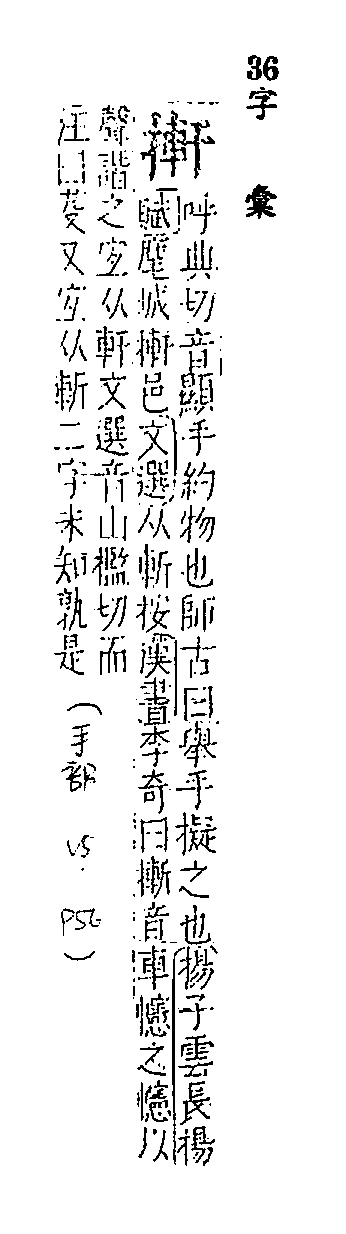 36字彙
㨘 呼典切音顯手約物也師古曰舉手擬之也揚子雲長楊
賦麾城摲邑文選从㨻按漢書李奇曰摲音車幰之幰以
聲諧之宜从軒文選音山檻切而
注曰芟又宜从斬二字未知孰是(手部 V5. P56)